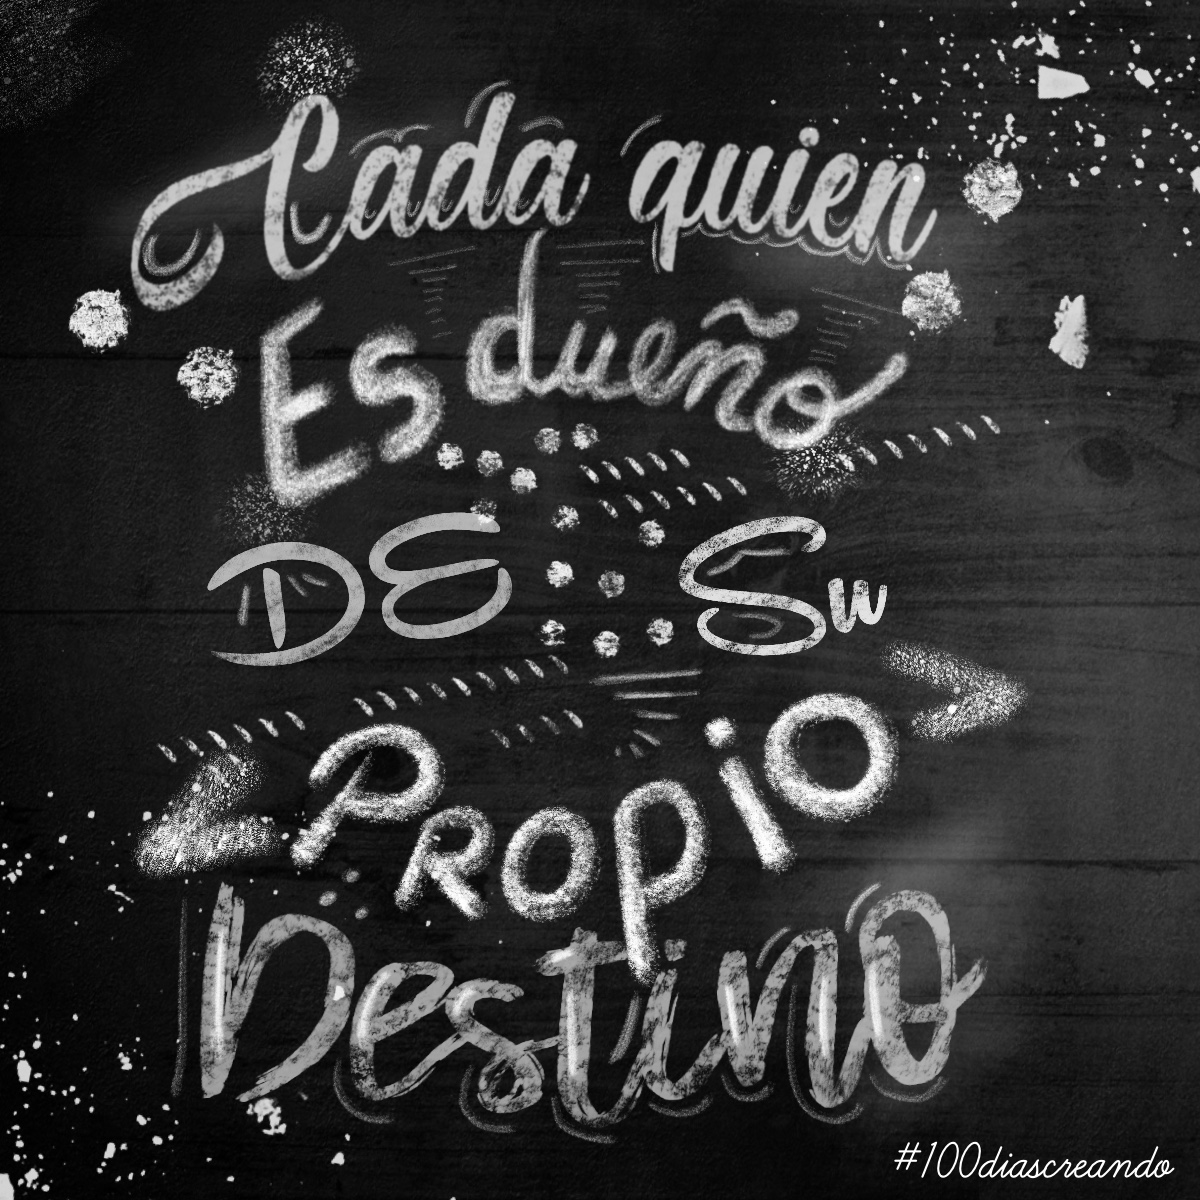 Cada quien
Es dueño
DE Su
Propio
Destino
#100diascreando